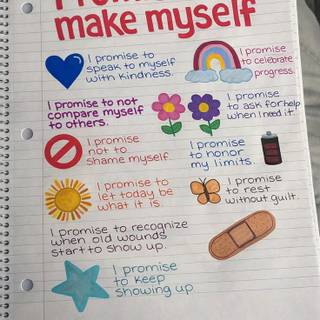 make myself
I promise to
speak to myself
with kindness.
I promise
to celebrate
progress.
I promise to not
compare myself
to others.
I promise
to ask for help
when I need it.
I promise
not to
shame myself.
I promise
to honor
my limits.
I promise to
let today be
what it is.
I promise
to rest
without guilt.
I promise to recognize
when old wounds
start to show up.
I promise
to keep
showing up